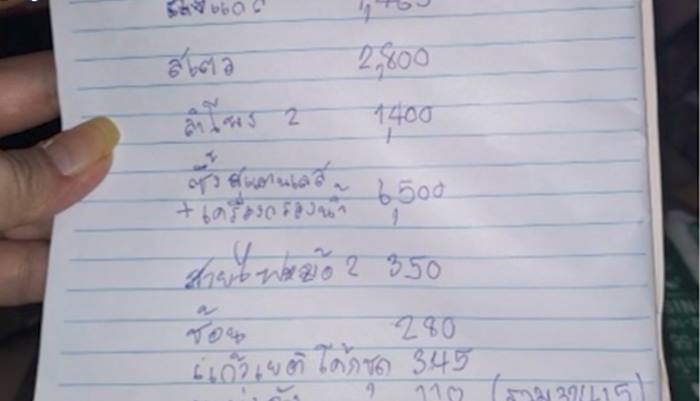 1,465
สเตอ 2,800
ลำโพง 2 1,400
ซิ้งสแตนเลส
+ เครื่องกรองน้ำ 6,500
สายไฟหม้อ 2 350
ช้อน 280
แก้วเยติ โค้กชุด 345
110